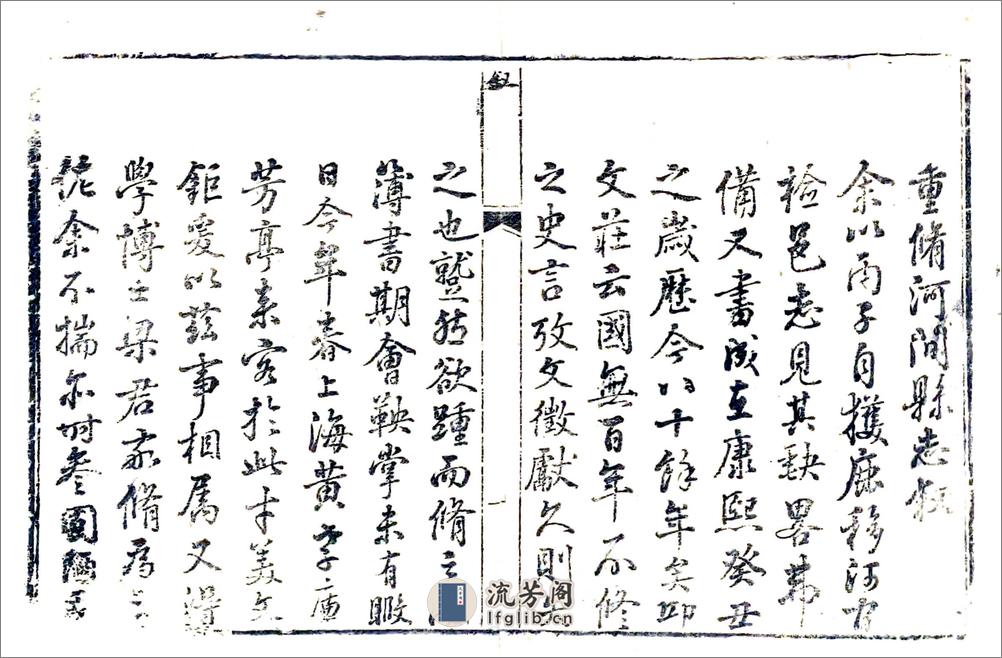 重脩河間縣志
余以丙子自獲鹿移河
檢邑志見其缺畧弗
備又書成在康熙癸丑
之歲歷今八十餘年矣
文莊云國無百年不修
之史言攷文徵獻久則
之也蹵然欲踵而脩之
簿書期會鞅掌未有暇
日今年春上海黄子
芳亭来客於此才美文
鉅爰以兹事相属又得
學博士梁君家脩為
余不揣亦时叅
叙
一
流芳阁
lfglib.cn